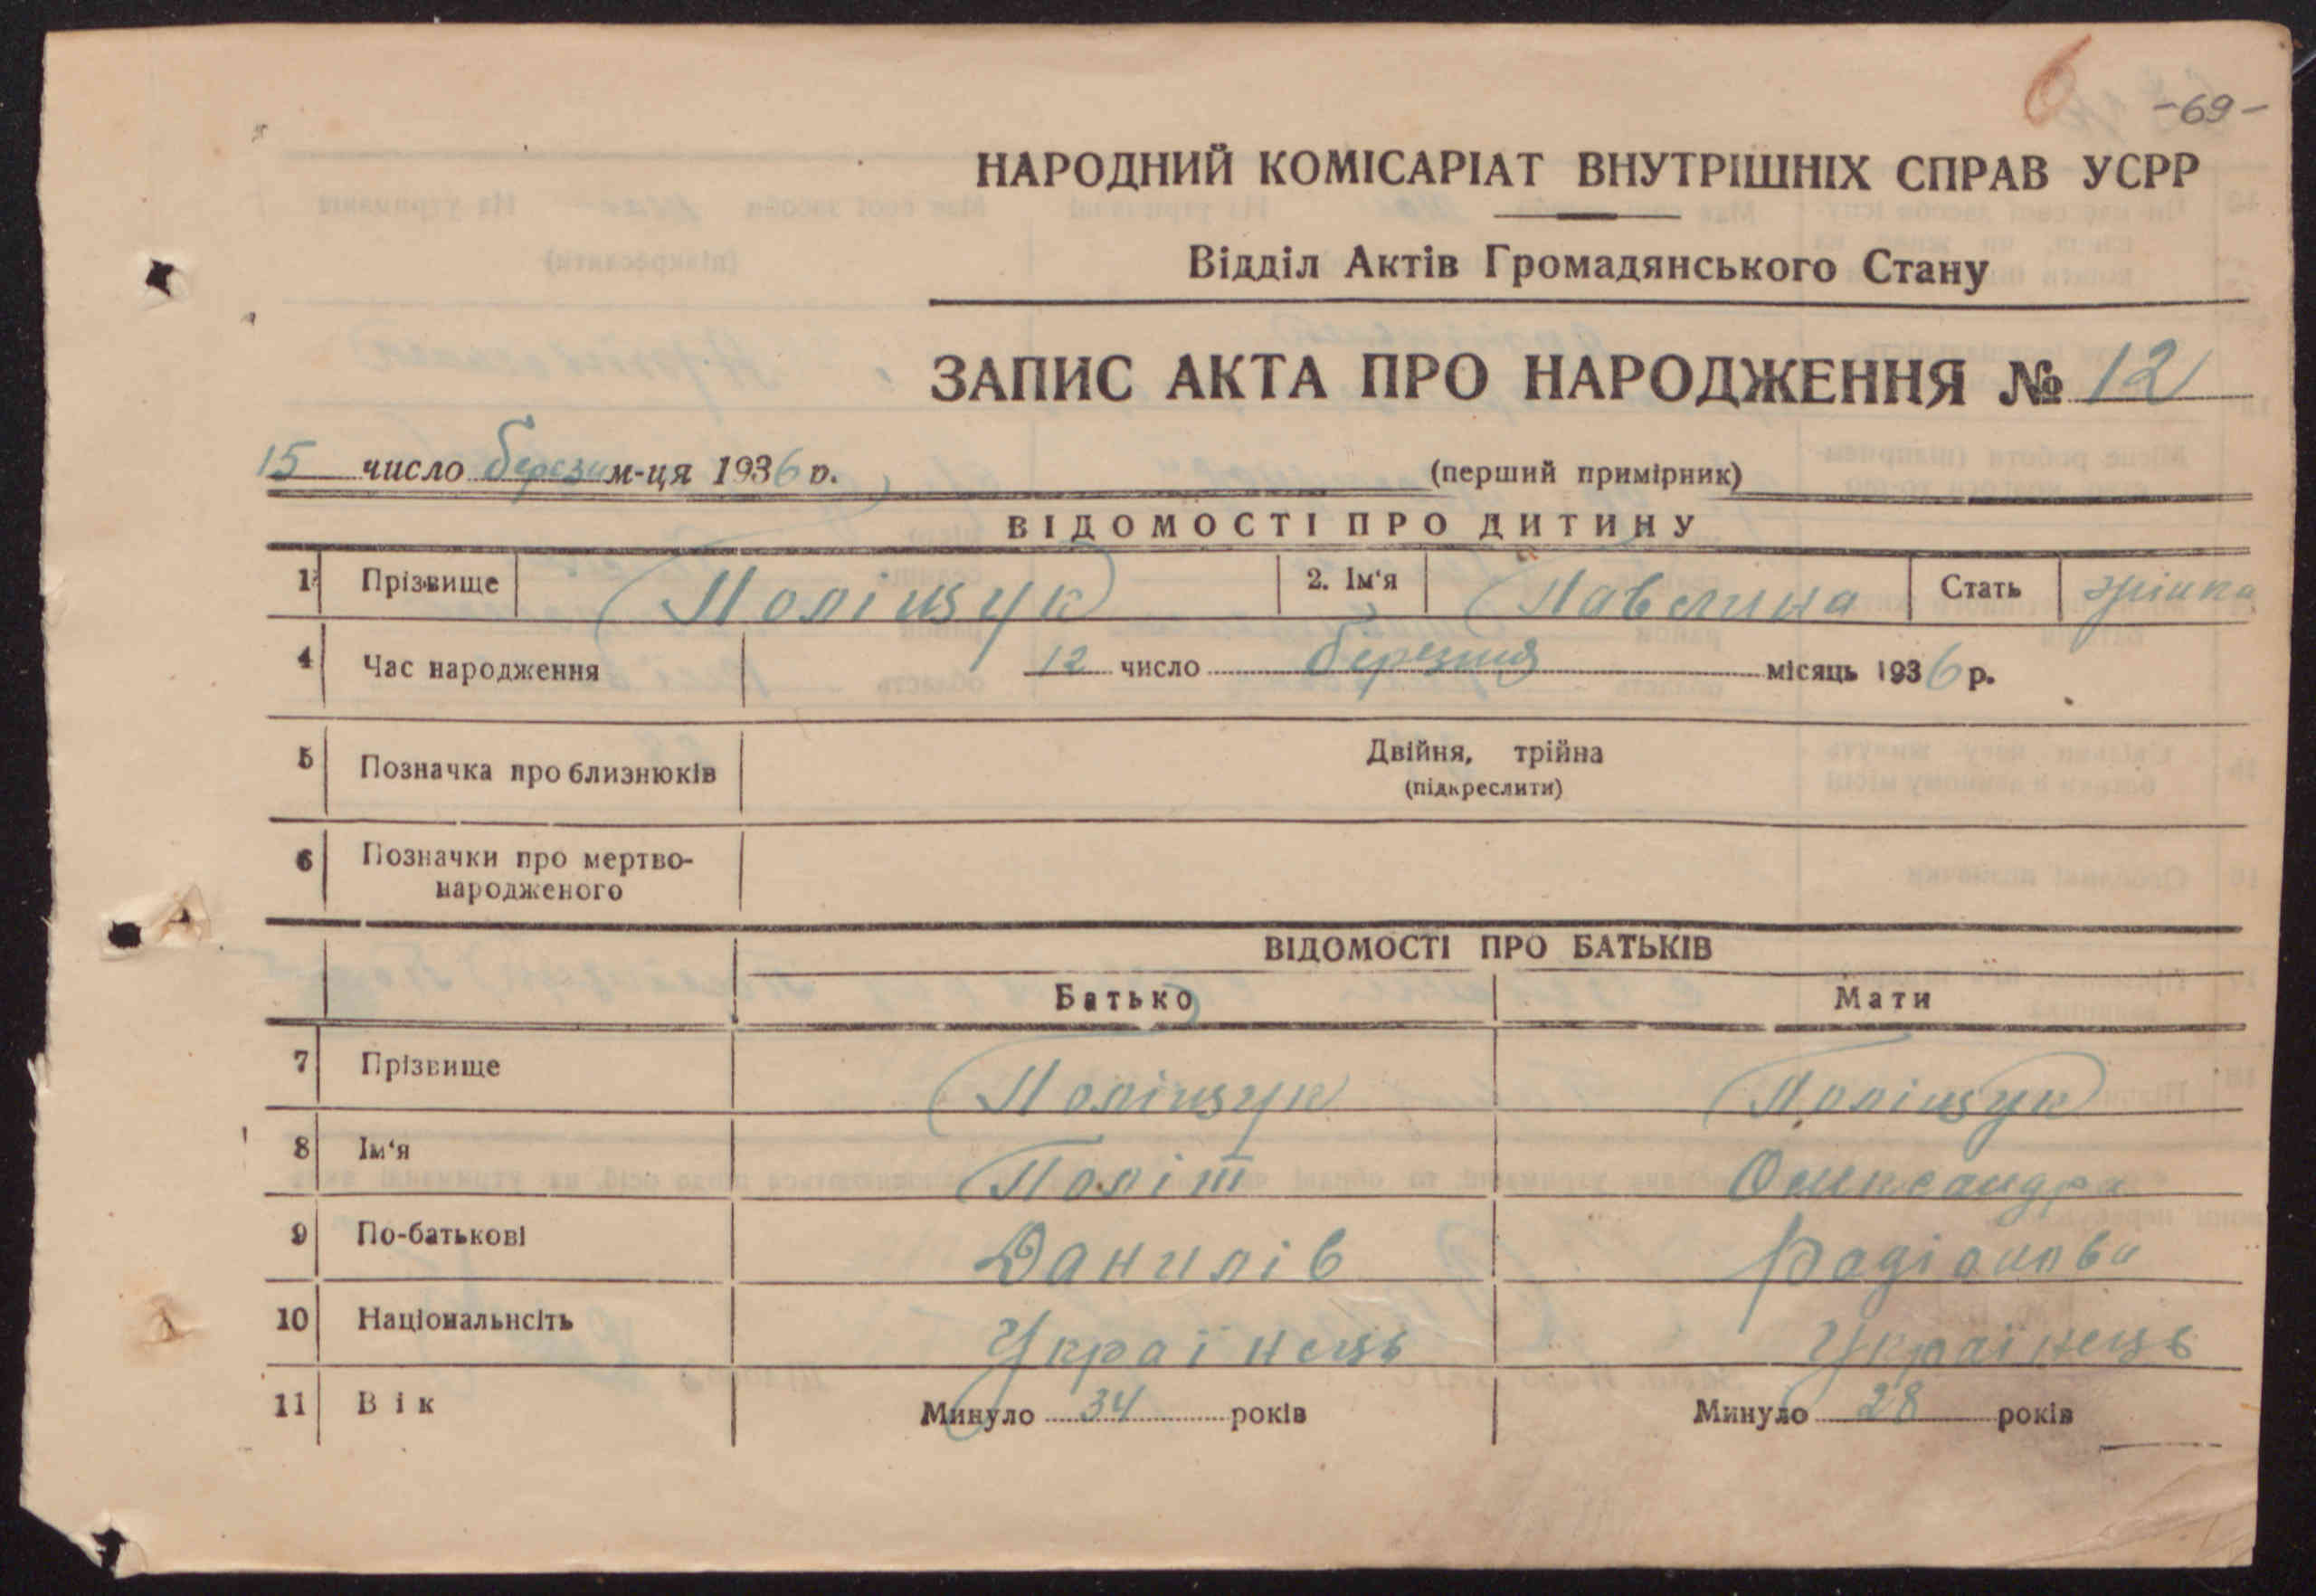 6 -69-
НАРОДНИЙ КОМІСАРІАТ ВНУТРІШНІХ СПРАВ УСРР
Відділ Актів Громадянського Стану
ЗАПИС АКТА ПРО НАРОДЖЕННЯ № 12
15 число березня м-ця 1936 р. (перший примірник)
ВІДОМОСТІ ПРО ДИТИНУ
1 Прізвище Поліщук 2. Ім'я Павлина Стать жіноча
4 Час народження 12 число березня місяць 1936 р.
5 Позначка про близнюків Двійня, трійна
(підкреслити)
6 Позначки про мертво-
народженого
ВІДОМОСТІ ПРО БАТЬКІВ
Батько Мати
7 Прізвище Поліщук Поліщук
8 Ім'я Політ Олександра
9 По-батькові Данилів Радіонова
10 Національнсіть Українець Українець
11 Вік Минуло 34 років Минуло 28 років